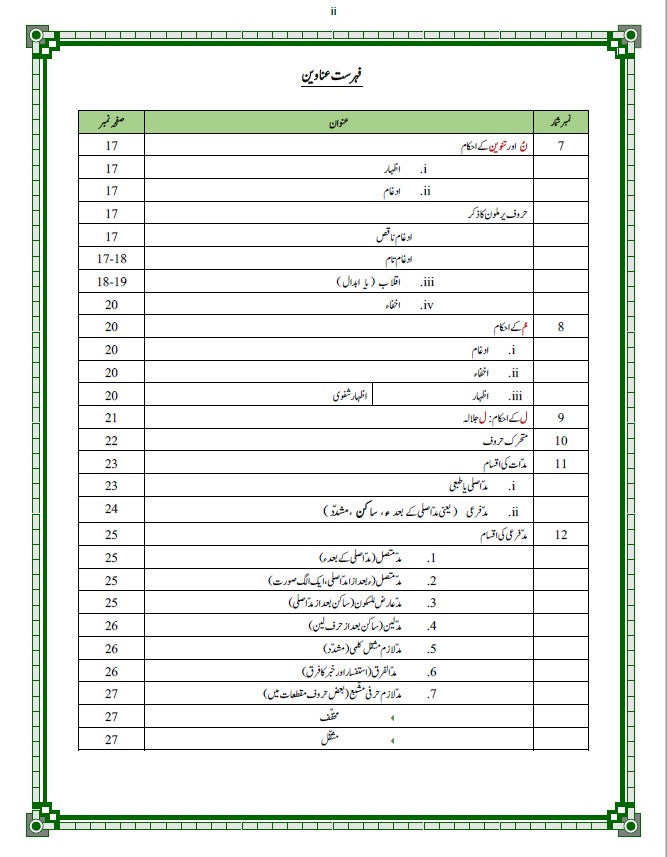 ii
فہرست عناوین
نمبر شمار عنوان صفحہ نمبر
7 نْ اور تنوین کے احکام 17
i. اظہار 17
ii. ادغام 17
حروف یرملون کا ذکر 17
ادغام ناقص 17
ادغام تام 17-18
iii. اقلاب (یا ابدال) 18-19
iv. اخفاء 20
8 مْ کے احکام 20
i. ادغام 20
ii. اخفاء 20
iii. اظہار اظہار شفوی 20
9 ل کے احکام: ل جلالہ 21
10 متحرک حروف 22
11 مدّات کی اقسام 23
i. مدّ اصلی یا طبعی 23
ii. مدّ فرعی (یعنی مدّ اصلی کے بعد ء، ساکن، مشدّد) 24
12 مدّ فرعی کی اقسام 25
1. مدّ متصل (مدّ اصلی کے بعد ء) 25
2. مدّ متصل (ء بعد از مدّ اصلی، ایک الگ صورت) 25
3. مدّ عارض للسکون (ساکن بعد از مدّ اصلی) 25
4. مدّ لین (ساکن بعد از حرف لین) 26
5. مدّ لازم مثقل کلمی (مشدّد) 26
6. مدّ الفرق (استفسار اور خبر کا فرق) 26
7. مدّ لازم حرفی مشبع (بعض حروف مقطعات میں) 27
مخفّف 27
مثقّل 27